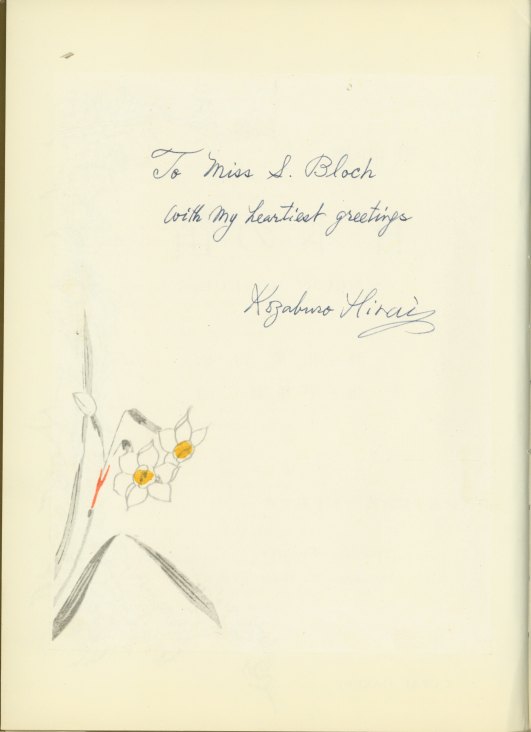 To Miss S. Bloch
with my heartiest greetings
Kozaburo Hirai